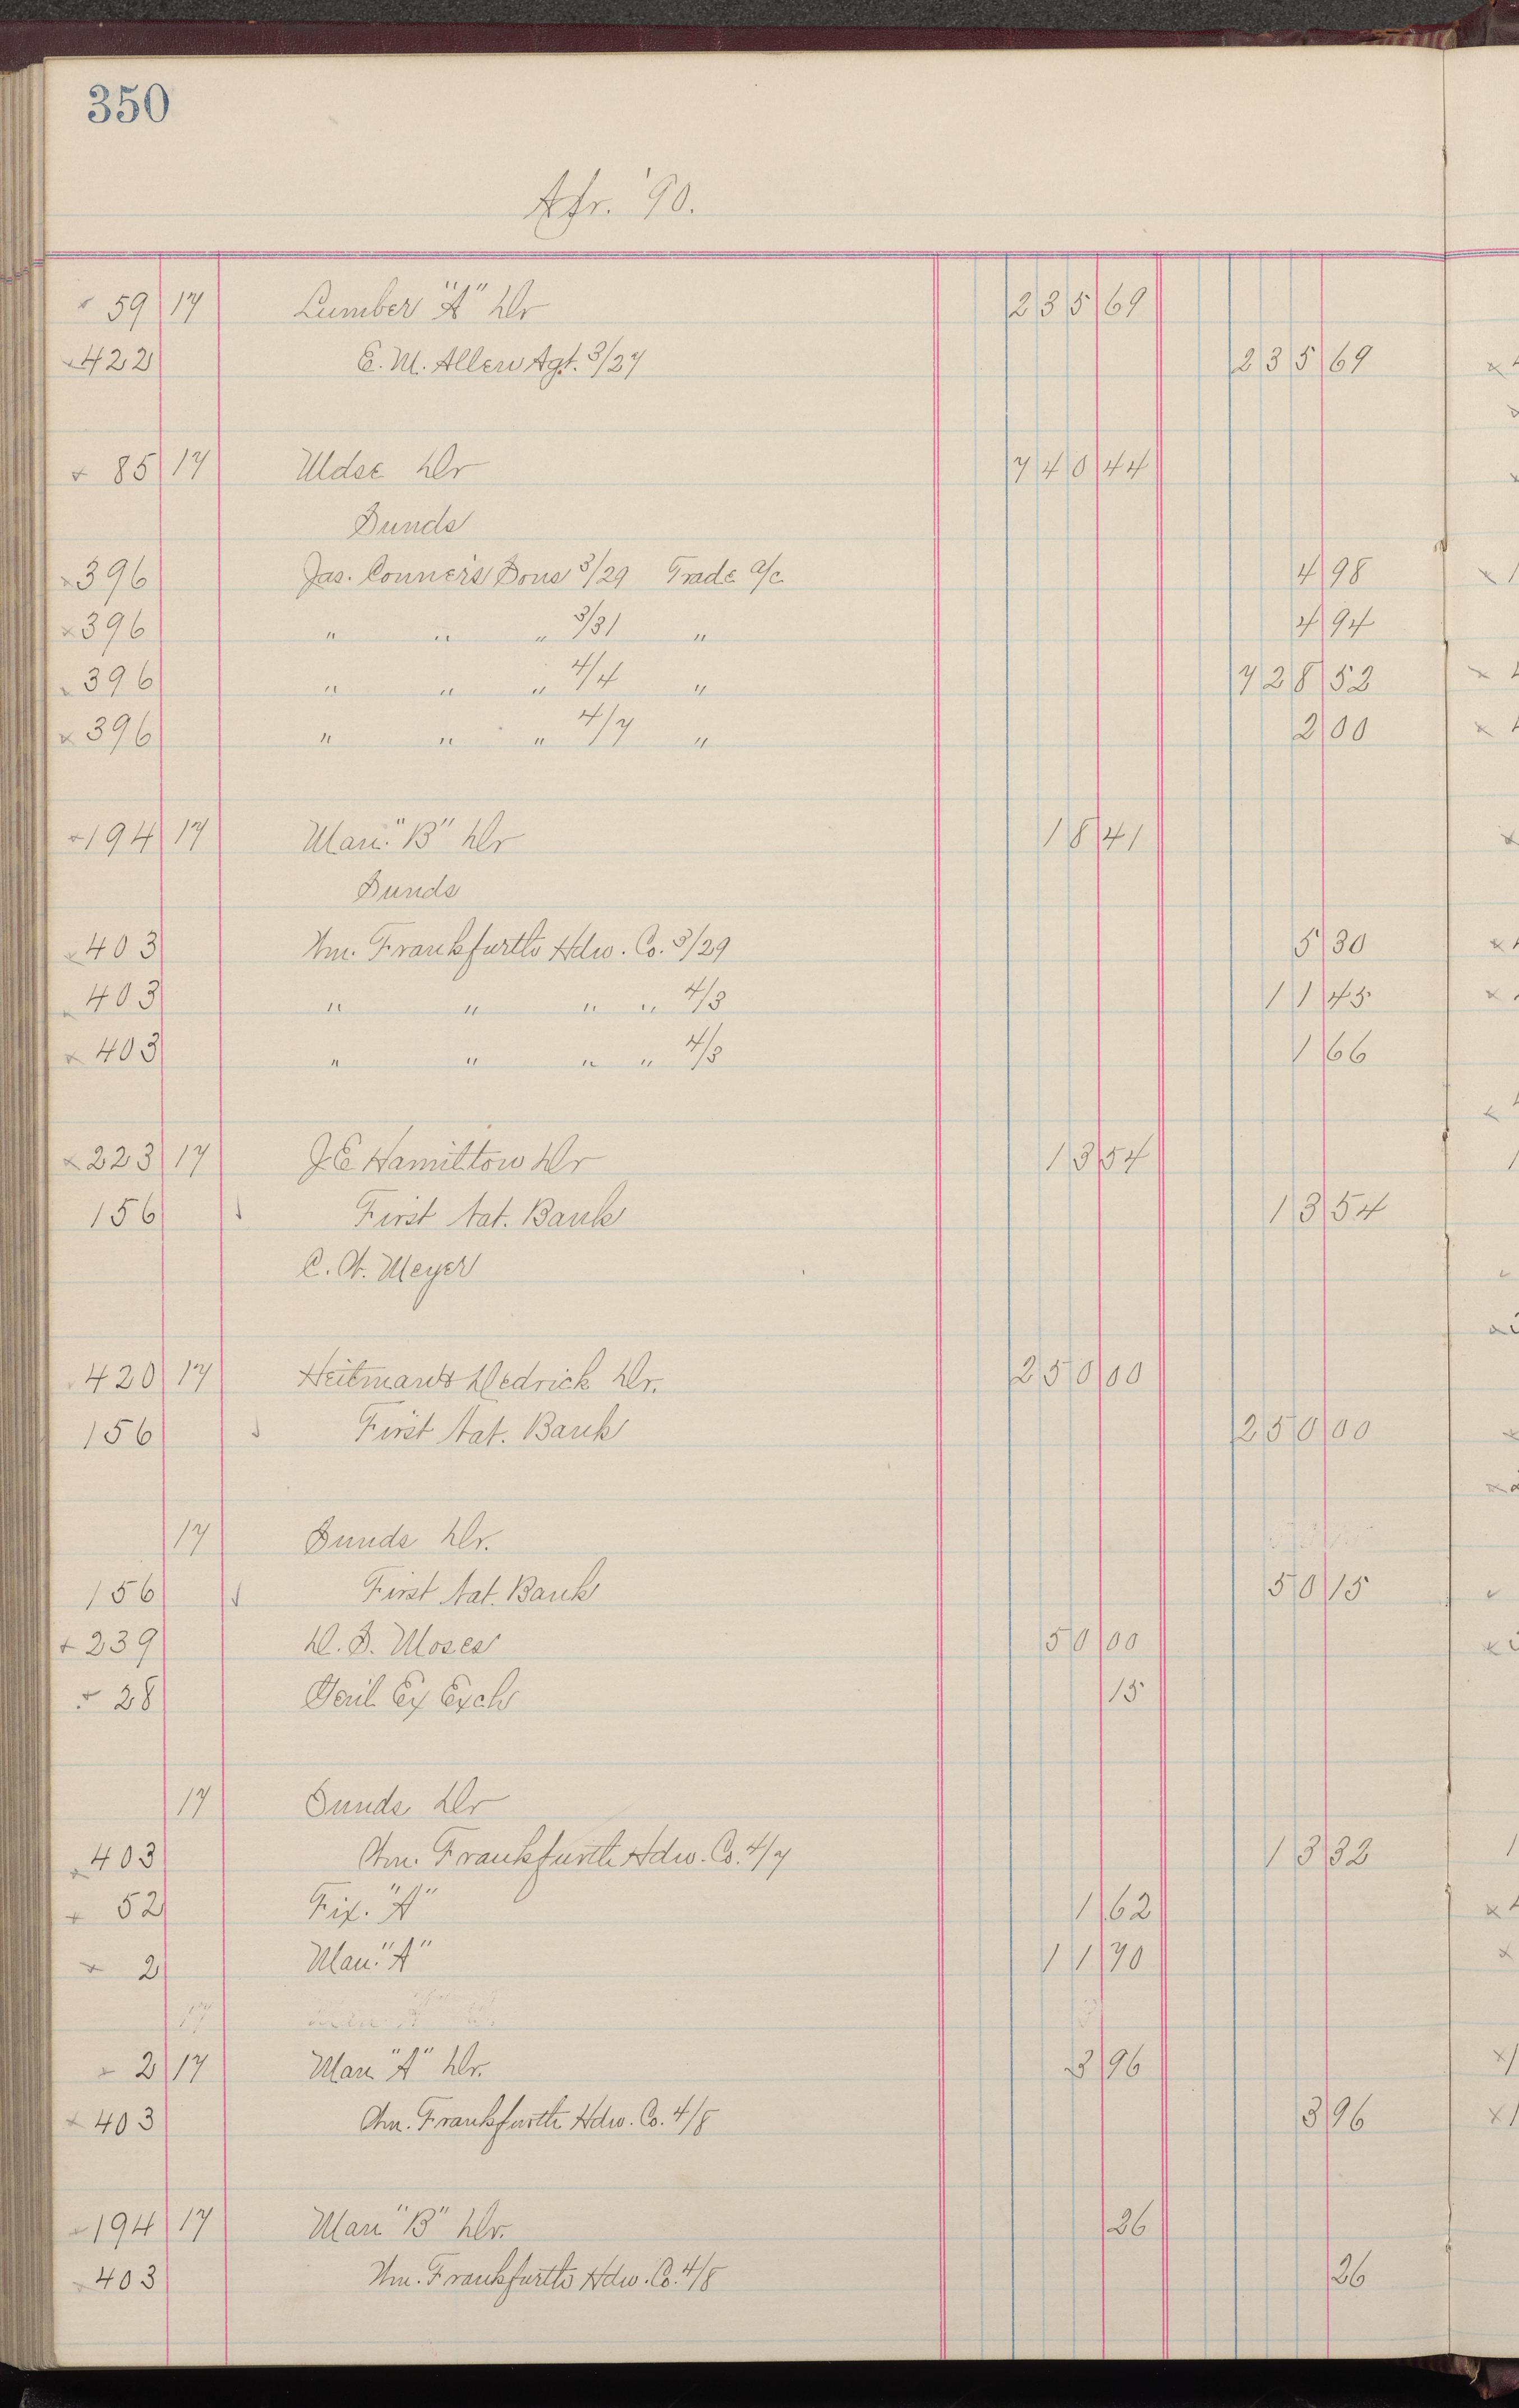 350
Apr. '90.
59 17 Lumber "A" Dr 235 69
422 E. M. Allen Agt. 3/27 235 69
85 17 Mdse Dr 740 44
Sunds
396 Jas. Conner's Sons 3/29 Trade a/c 4 98
396 " " " 3/31 " 4 94
396 " " " 4/4 " 728 52
396 " " " 4/7 " 2 00
194 17 Man. "B" Dr 18 41
Sunds
403 Wm. Frankfurth Hdw. Co. 3/29 5 30
403 " " " " 4/3 11 45
403 " " " " 4/3 1 66
223 17 J E Hamilton Dr 13 54
156 First Nat. Bank 13 54
C. W. Meyer
420 17 Heitman & Dedrick Dr. 250 00
156 First Nat. Bank 250 00
17 Sunds Dr.
156 First Nat. Bank 50 15
239 D. S. Moses 50 00
28 Genl. Ex Exch 15
17 Sunds Dr
403 Wm. Frankfurth Hdw. Co. 4/7 13 32
52 Fix. "A" 1 62
2 Man. "A" 11 70
2 17 Man "A" Dr. 3 96
403 Wm. Frankfurth Hdw. Co. 4/8 3 96
194 17 Man "B" Dr. 26
403 Wm. Frankfurth Hdw. Co. 4/8 26